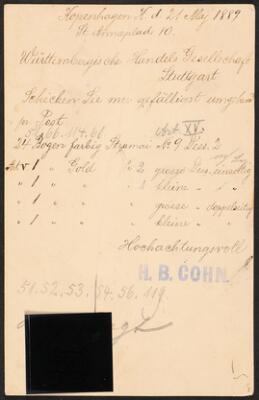 Kopenhagen K. d. 21 Maj 1889
St. Annaplad 10.
Württembergische Handels Gesellschaft
Stuttgart
Schicken Sie mir gefälligst umgehend
pr Post
54. 66. 114. 61 Art XV.
24 Bogen farbig No 9 Dess. 2
1 Gold 2 grosse Des. einseitig
" 1 " " " kleine " "
" 1 " " " grosse " doppelseitig
" 1 " " " kleine " "
Hochachtungsvoll
H. B. COHN.
51. 52. 53. 54. 56. 119